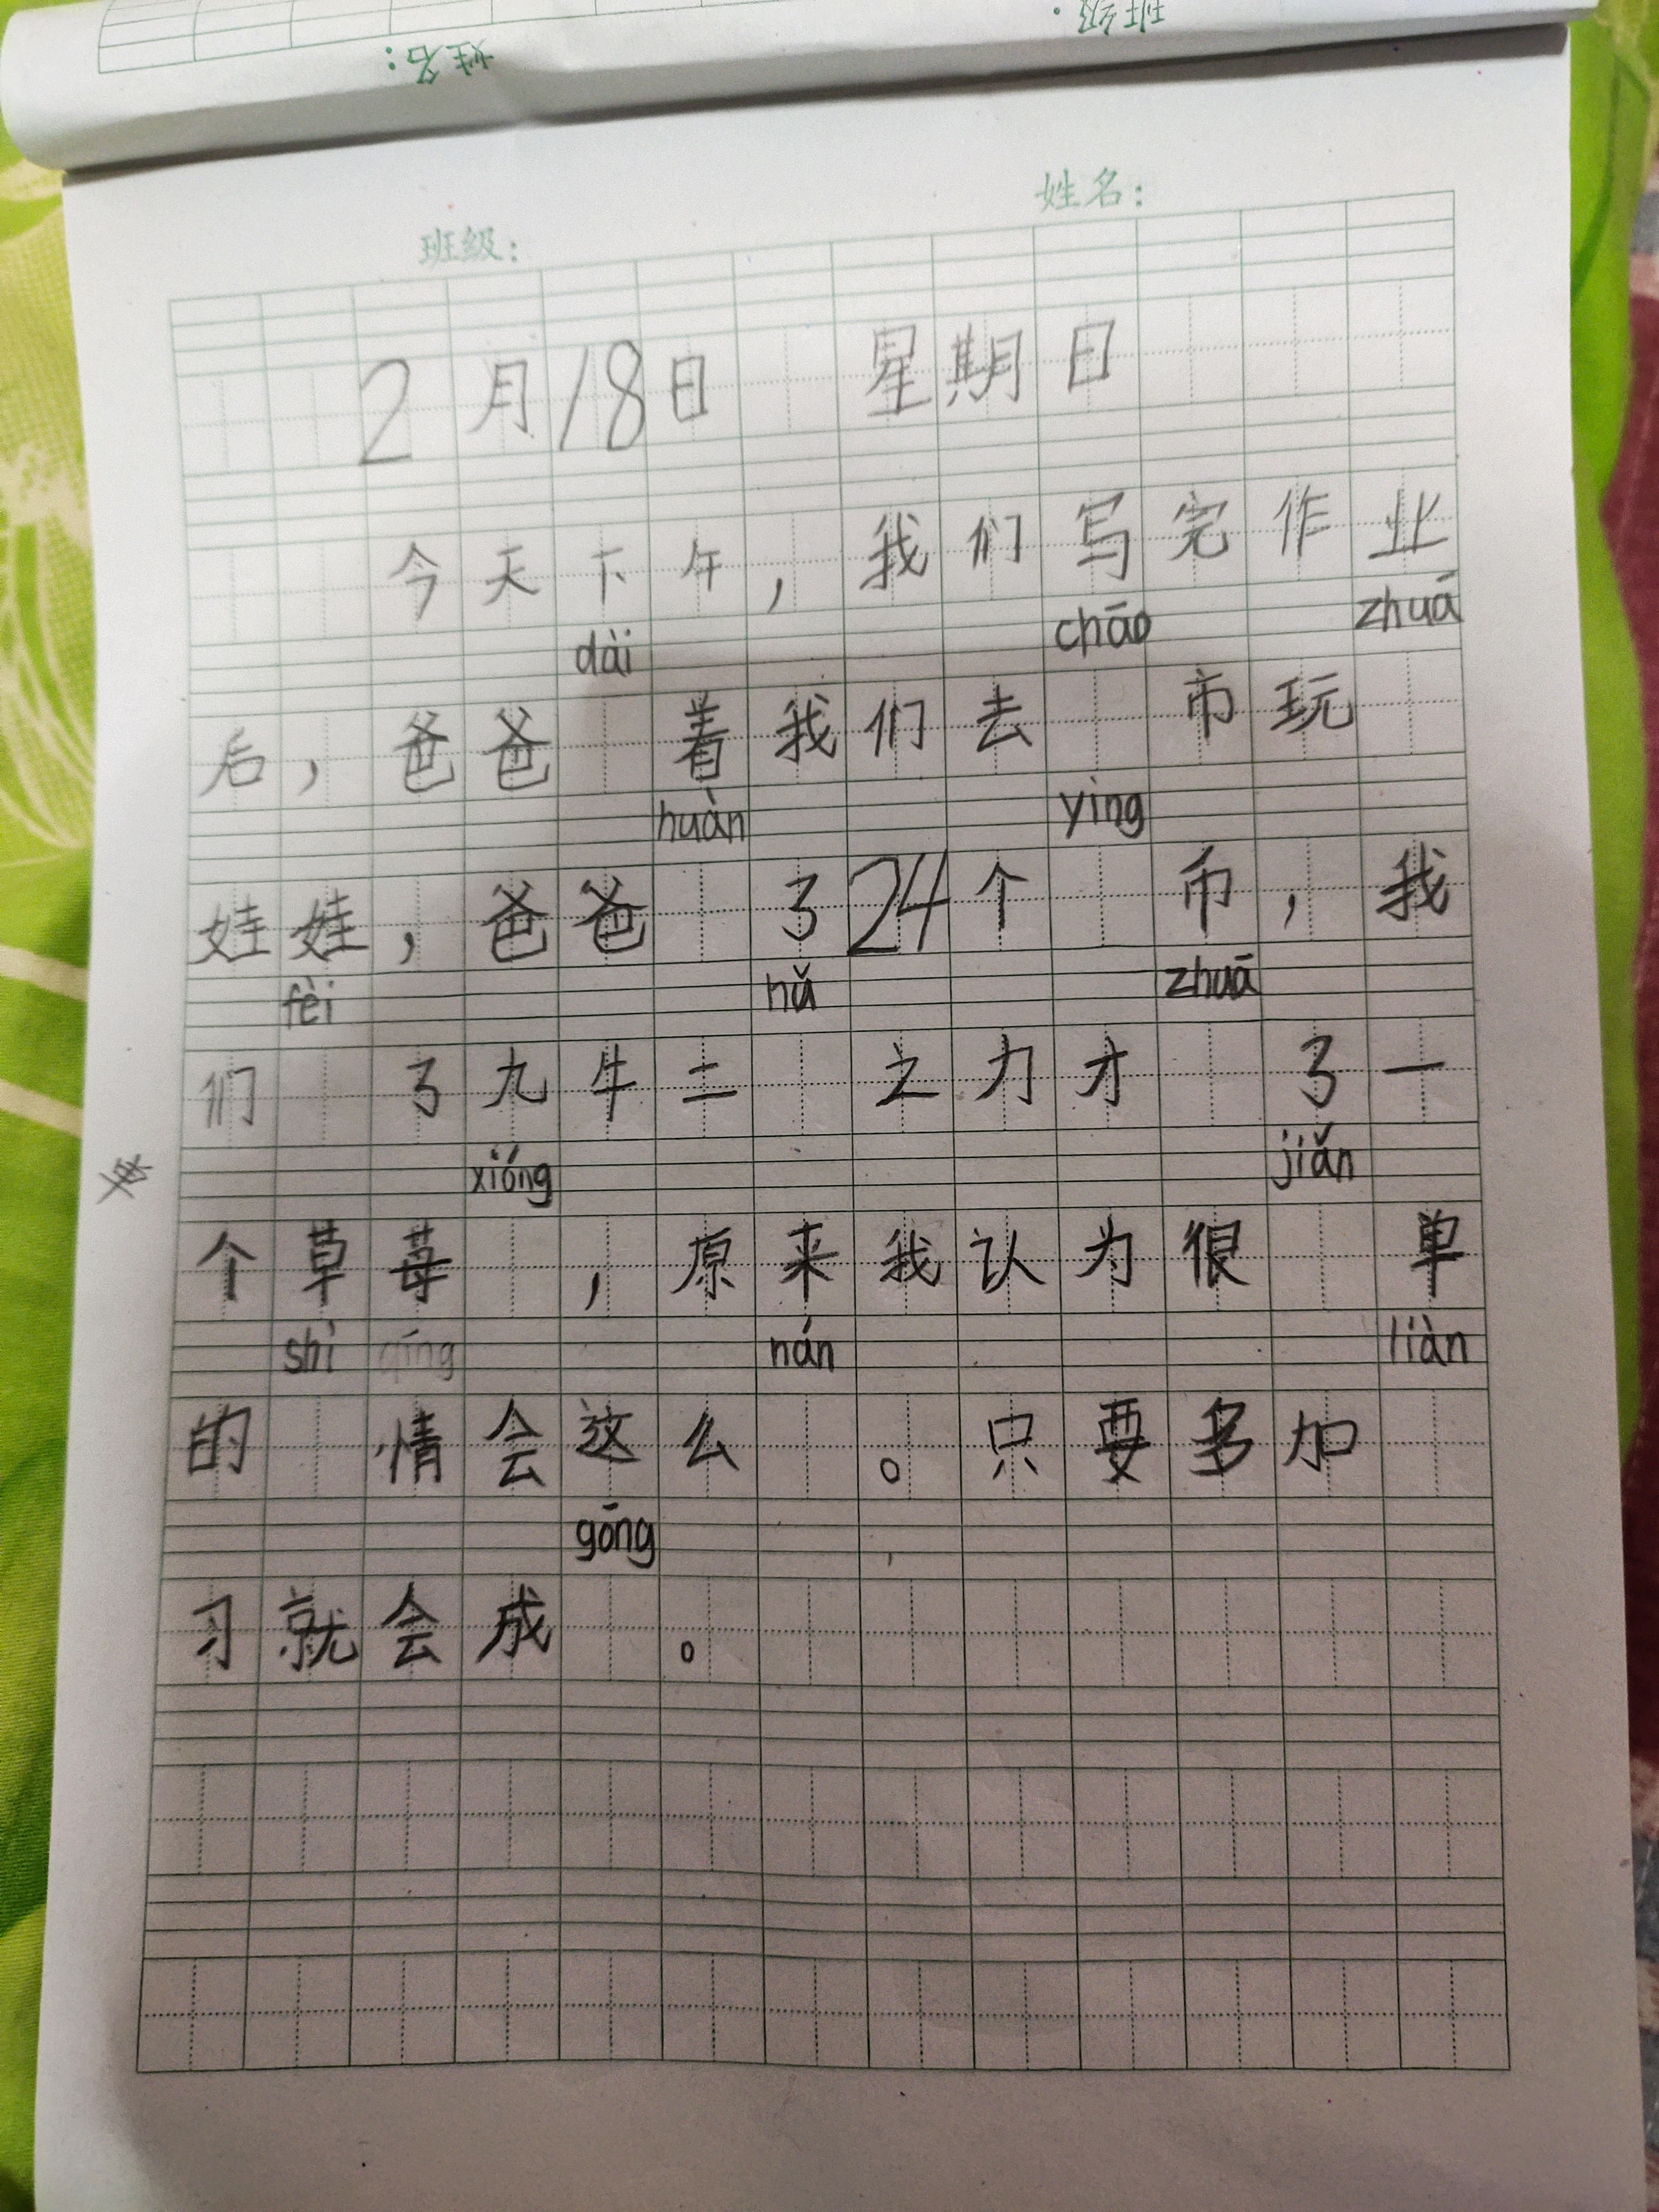 姓名：
班级：
班级：
姓名：
2月18日 星期日
今天下午，我们写完作业
dài chāo zhuā
后，爸爸 着我们去 市玩
huàn yìng
娃娃，爸爸 了24个 币，我
fèi hǔ zhuā
们 了九牛二 之力才 了一
xióng jiǎn
个草莓 ，原来我认为很 单
shì qíng nán liàn
的 情会这么 。只要多加
gōng
习就会成 。